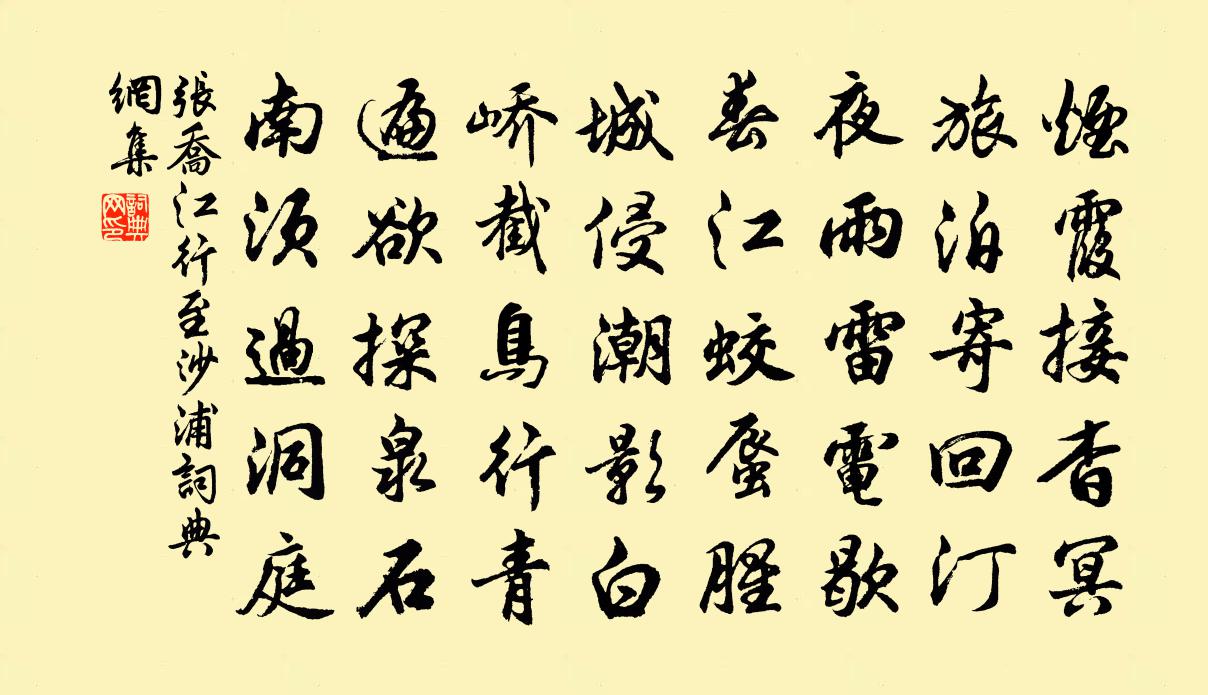 煙霞接杳冥
旅泊寄回汀
夜雨雷電歇
春江蛟蜃腥
城侵潮影白
嶠截鳥行青
遍欲探泉石
南須過洞庭
張喬江行至沙浦詞典
網集
詞典
网印